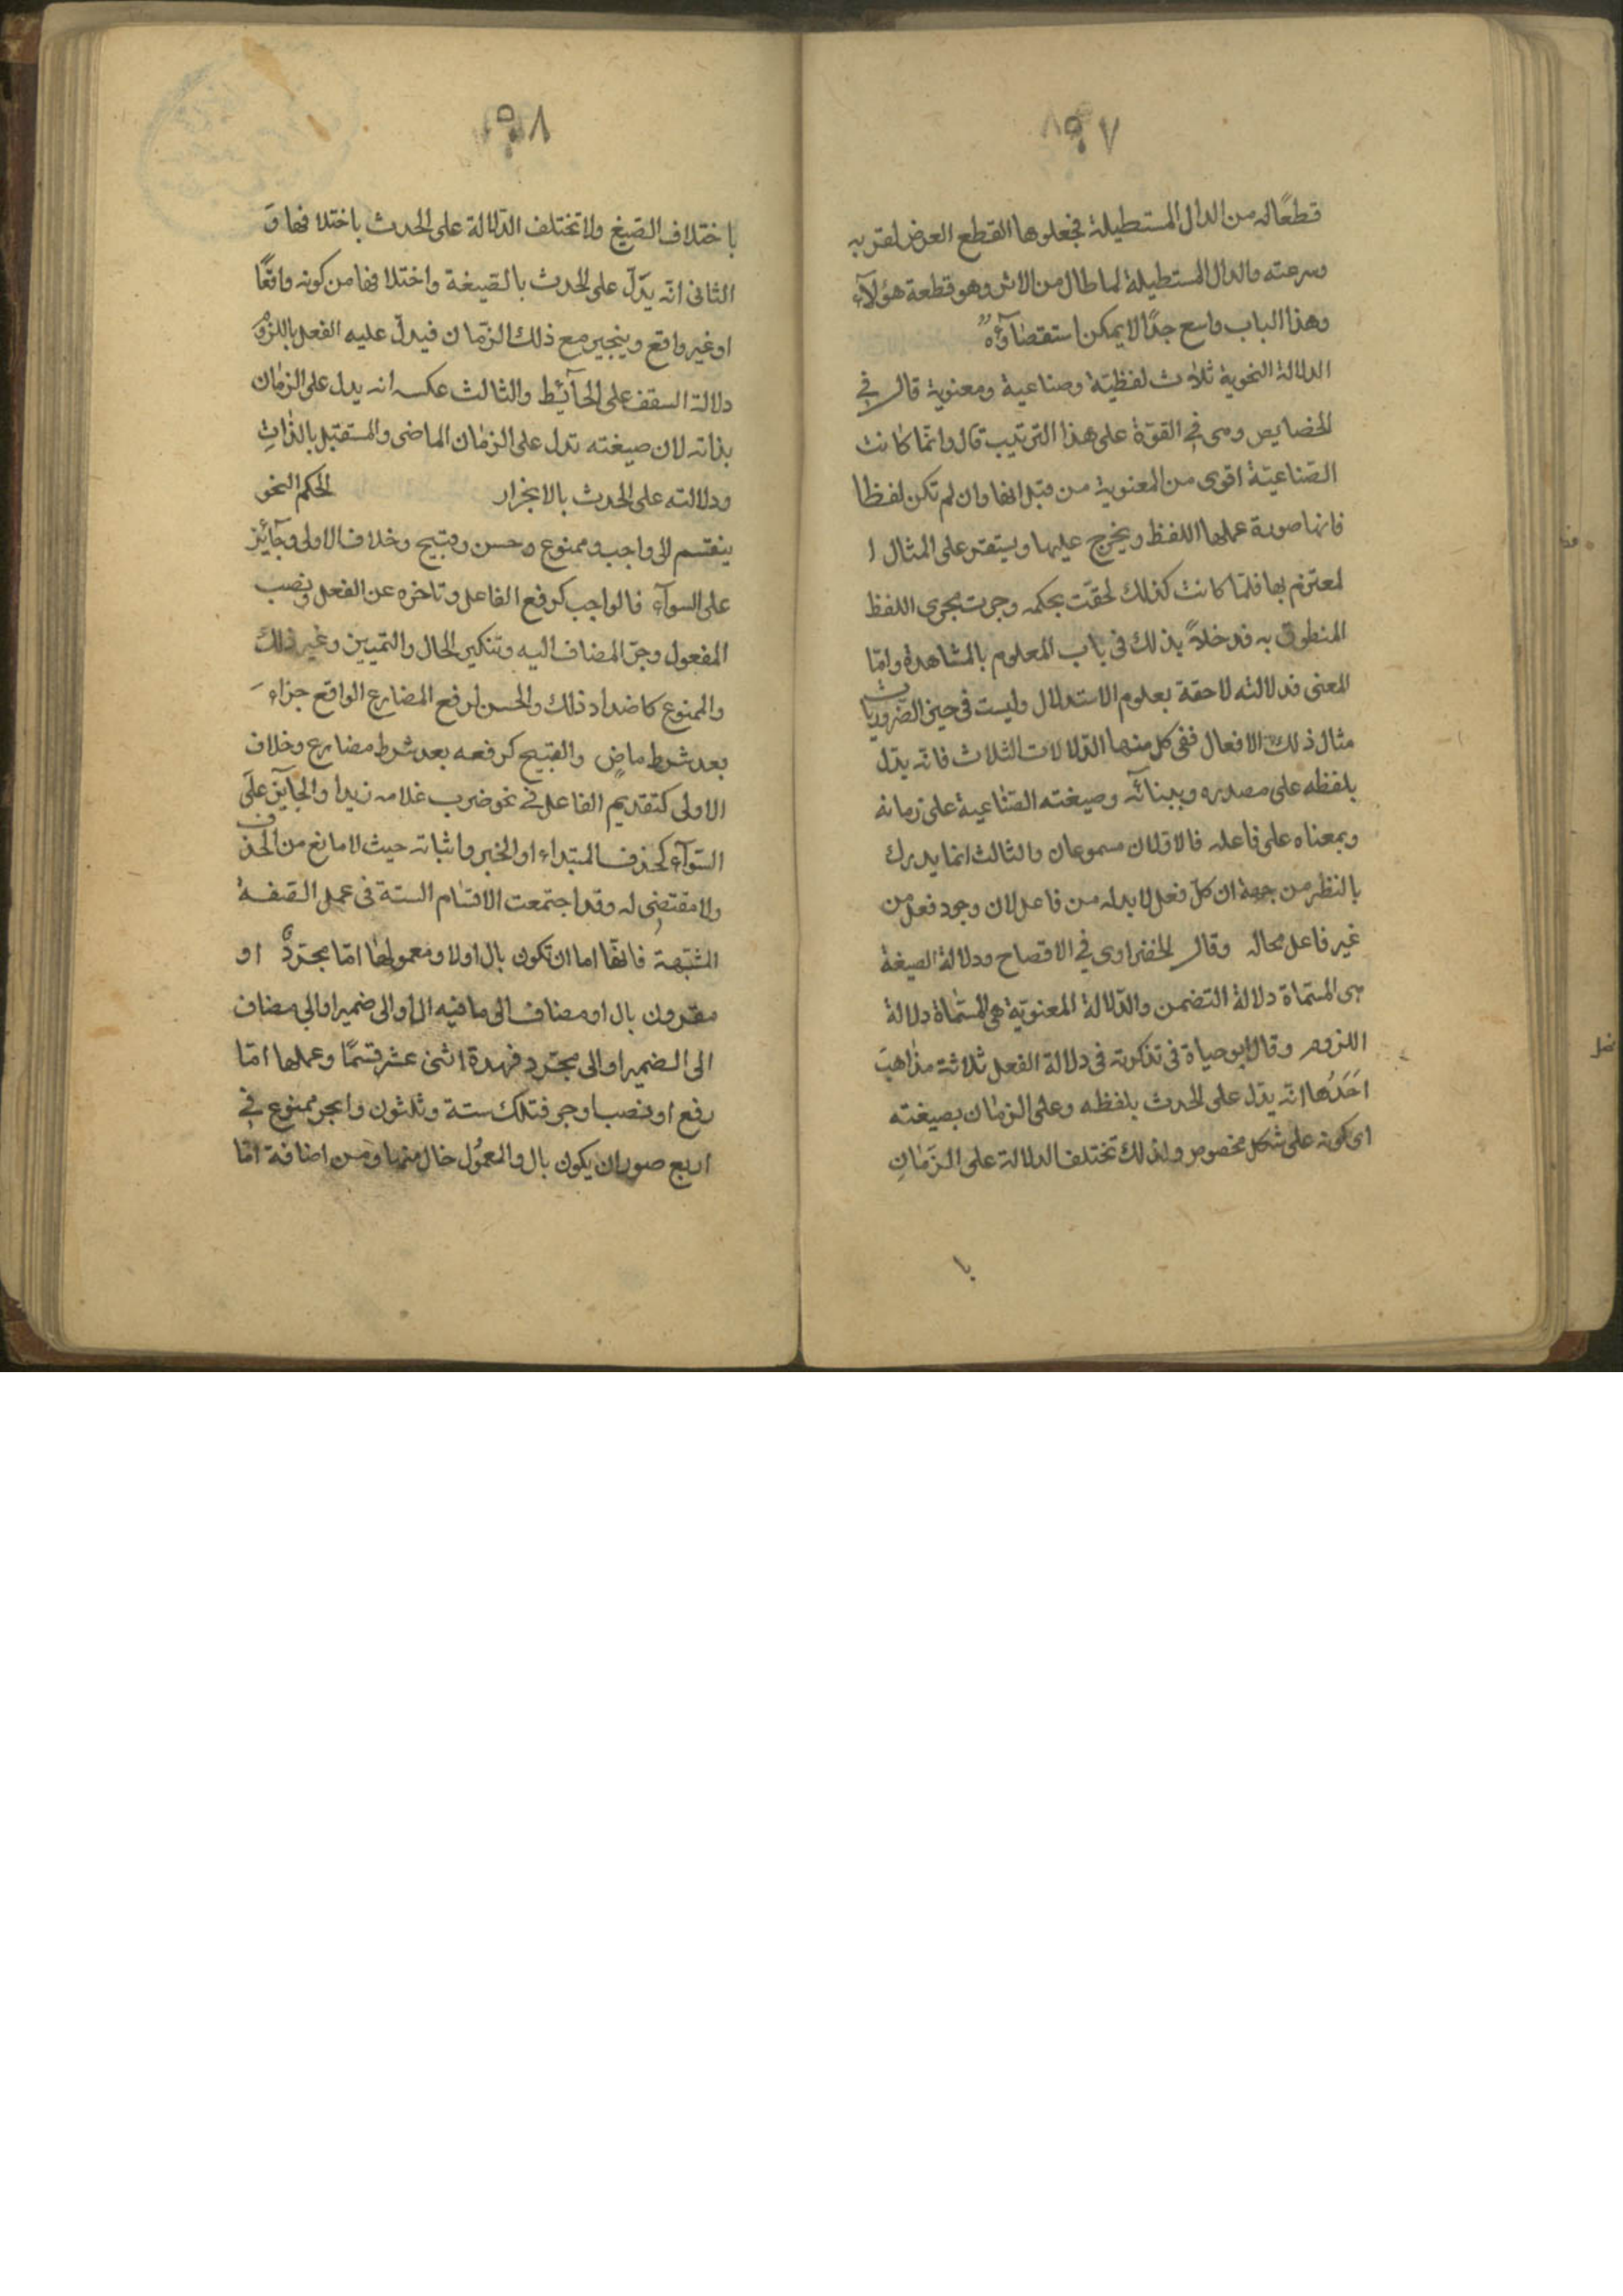 ٧
قطعًا له من الدال المستطيلة فجعلوها القطع العرض لقربه
وسرعته والدال المستطيلة لما طال من الاثر وهو قطعة هؤلآء
وهذا الباب واسع جدًا لا يمكن استقصاؤه
الدلالة النحوية ثلاث لفظيّة وصناعية ومعنوية قال في
الخصايص وهى في القوّة على هذا الترتيب قال وانّما كانت
الصّناعيّة اقوى من المعنوية من قبل انها وان لم تكن لفظا
فانها صورة عملها اللفظ ويخرج عليها ويستقر على المثال ا
لمعتزم بها فلمّا كانت كذلك لحقت بحكمه وجرت مجرى اللفظ
المنطوق به فدخلاً بذلك في باب المعلوم بالمشاهدة وامّا
المعنى فدلالته لاحقة بعلوم الاستدلال وليست في حيز الضّروريات
مثال ذلك الافعال ففى كل منها الدّلالات الثلاث فانه يدّل
بلفظه على مصدره وببنائه وصيغته الصّناعية على زمانه
وبمعناه على فاعله فالاوّلان مسموعان والثالث انما يدرك
بالنظر من جهة ان كلّ فعل لا بدله من فاعل لان وجود فعل من
غير فاعل محال وقال الخضراوى في الافصاح ودلالة الصيغة
هى المسمّاة دلالة التضمن والدّلالة المعنويّة هي المسمّاة دلالة
اللزوم وقال ابو حياة في تذكرته في دلالة الفعل ثلاثة مذاهبَ
اَحَدُها انّه يدّل على الحدث بلفظه وعلى الزمان بصيغته
اى كونه على شكل مخصوص ولذلك تختلف الدلالة على الزّمانِ
با
٨
باختلاف الصّيغ ولا تختلف الدّلالة على الحدث باختلافها وَ
الثانى انّه يدّل على الحدث بالصّيغة واختلافها من كونه واقعًا
او غير واقع وينجر مع ذلك الزّمان فيدلّ عليه الفعل باللزوم
دلالة السقف على الحآئيط والثالث عكسه انه يدل على الزمان
بذاته لان صيغته تدل على الزمان الماضى والمستقبل بالذاتِ
ودلالته على الحدث بالانجرار الحكم النحو
ينقسم الى واجب وممنوع وحسن وقبيح وخلاف الاولى وجآئيز
على السوآء فالواجب كرفع الفاعل وتاخره عن الفعل ونصب
المفعول وجرّ المضاف اليه وتنكير الحال والتمييز وغير ذلك
والممنوع كاضداد ذلك والحسن كرفع المضارع الواقع جزاء
بعد شرط ماضٍ والقبيح كرفعه بعد شرط مضارع وخلاف
الاولى كتقديم الفاعل في نحو ضرب غلامه زيدا والجآيز على
السّوآء كحذف المبتداء او الخبر واثباته حيث لا مانع من الحذف
ولا مقتضى له وقد اجتمعت الاقسام الستة في عمل الصّفة
المشبّهة فانّها اما ان تكون بال اولا ومعمولها امّا مجرّد او
مقرون بال او مضاف الى ما فيه ال او الى ضمير او الى مضاف
الى الضمير او الى مجرّد فهذه اثنى عشر قسمًا وعملها امّا
رفع او نصب او جر فتلك ستة وثلثون والجر ممنوع في
اربع صور ان يكون بال والمعمُول خال منها ومن اضافة امّا